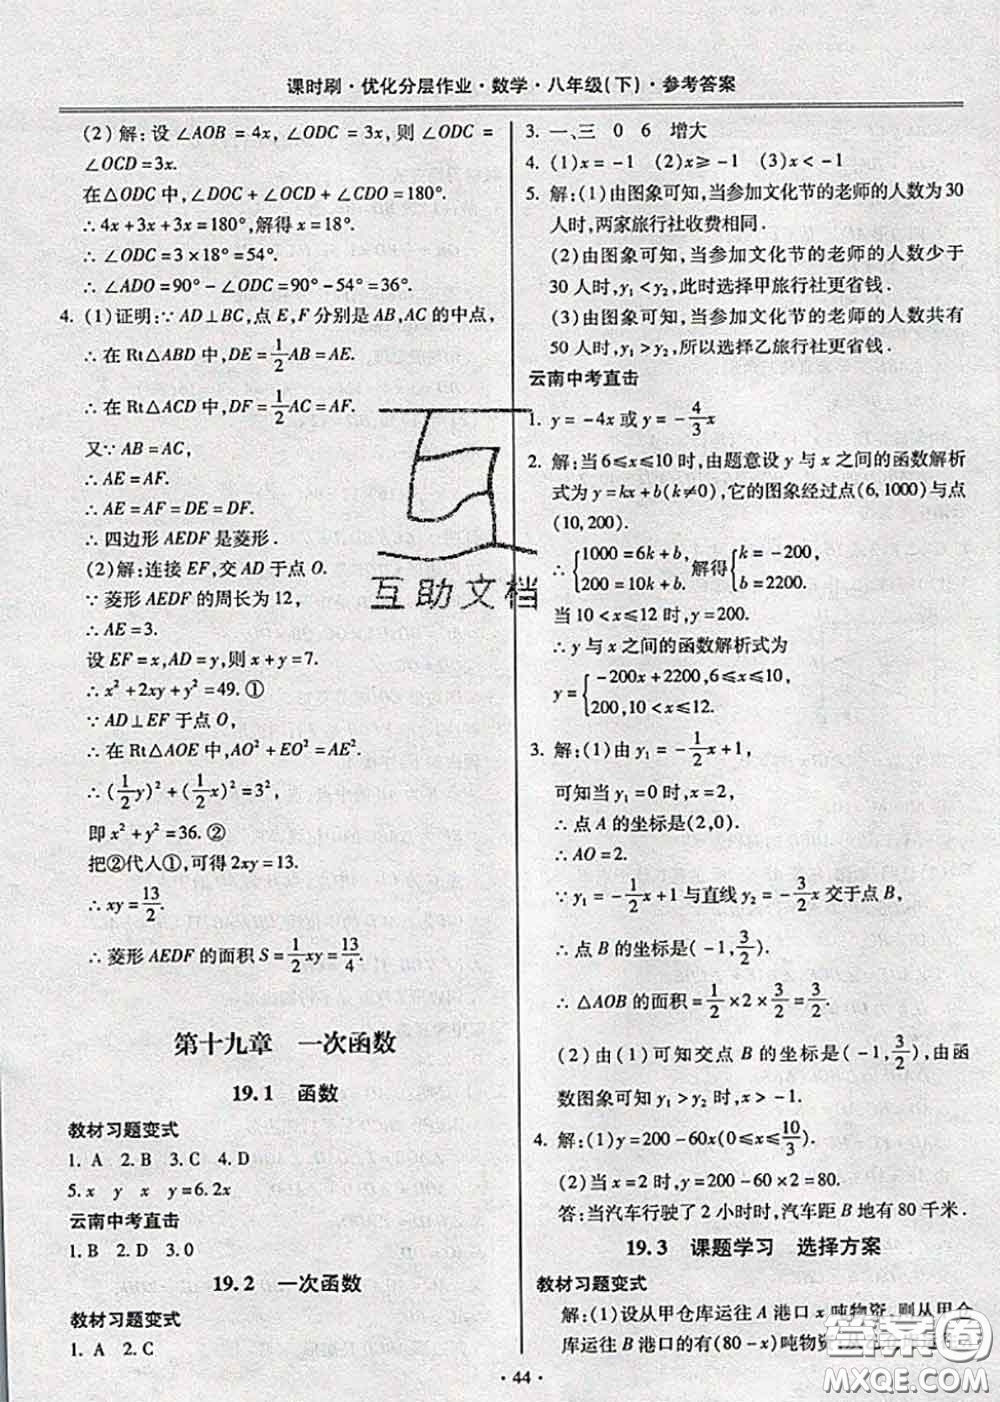 课时刷·优化分层作业·数学·八年级(下)·参考答案
(2)解:设∠AOB=4x,∠ODC=3x,则∠ODC=
∠OCD=3x.
在△ODC中,∠DOC+∠OCD+∠CDO=180°.
∴4x+3x+3x=180°,解得x=18°.
∴∠ODC=3×18°=54°.
∴∠ADO=90°-∠ODC=90°-54°=36°.
4. (1)证明:∵AD⊥BC,点E,F分别是AB,AC的中点,
∴在Rt△ABD中,DE=1/2AB=AE.
∴在Rt△ACD中,DF=1/2AC=AF.
又∵AB=AC,
∴AE=AF.
∴AE=AF=DE=DF.
∴四边形AEDF是菱形.
(2)解:连接EF,交AD于点O.
∵菱形AEDF的周长为12,
∴AE=3.
设EF=x,AD=y,则x+y=7.
∴x²+2xy+y²=49. ①
∵AD⊥EF于点O,
∴在Rt△AOE中,AO²+EO²=AE².
∴(1/2y)²+(1/2x)²=3²,
即x²+y²=36. ②
把②代入①,可得2xy=13.
∴xy=13/2.
∴菱形AEDF的面积S=1/2xy=13/4.
第十九章 一次函数
19.1 函数
教材习题变式
1. A 2. B 3. C 4. D
5. x y x y=6.2x
云南中考直击
1. B 2. D 3. 0
19.2 一次函数
教材习题变式
1. A 2. C
3. 一、三 0 6 增大
4. (1)x=-1 (2)x≥-1 (3)x<-1
5. 解:(1)由图象可知,当参加文化节的老师的人数为30
人时,两家旅行社收费相同.
(2)由图象可知,当参加文化节的老师的人数少于
30人时,y₁<y₂,此时选择甲旅行社更省钱.
(3)由图象可知,当参加文化节的老师的人数共有
50人时,y₁>y₂,所以选择乙旅行社更省钱.
云南中考直击
1. y=-4x或y=-4/3x
2. 解:当6≤x≤10时,由题意设y与x之间的函数解析
式为y=kx+b(k≠0),它的图象经过点(6,1000)与点
(10,200).
∴{1000=6k+b, 200=10k+b, 解得{k=-200, b=2200.
当10<x≤12时,y=200.
∴y与x之间的函数解析式为
y={-200x+2200,6≤x≤10, 200,10<x≤12.
3. 解:(1)由y₁=-1/2x+1,
可知当y₁=0时,x=2,
∴点A的坐标是(2,0).
∴AO=2.
∵y₁=-1/2x+1与直线y₂=-3/2x交于点B,
∴点B的坐标是(-1,3/2).
∴△AOB的面积=1/2×2×3/2=3/2.
(2)由(1)可知交点B的坐标是(-1,3/2),由函
数图象可知y₁>y₂时,x>-1.
4. 解:(1)y=200-60x(0≤x≤10/3).
(2)当x=2时,y=200-60×2=80.
答:当汽车行驶了2小时时,汽车距B地有80千米.
19.3 课题学习 选择方案
教材习题变式
解:(1)设从甲仓库运往A港口x吨物资,则从甲仓
库运往B港口的有(80-x)吨物资,
·44·
互助文档
答案圈
MXQE.COM